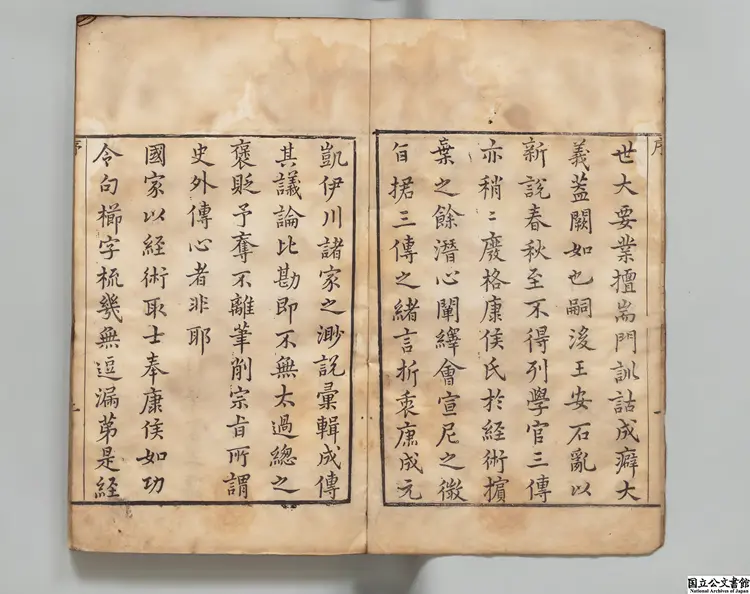 序
世大要業擅耑門訓詁成癖大
義蓋闕如也嗣後王安石亂以
新說春秋至不得列學官三傳
亦稍〻廢格康侯氏於經術擯
棄之餘潛心闡繹會宣尼之微
旨捃三傳之緒言折衷康成元
凱伊川諸家之渺說彙輯成傳
其議論比勘即不無太過總之
褒貶予奪不離筆削宗旨所謂
史外傳心者非耶
國家以經術取士奉康侯如功
令句櫛字梳幾無逗漏苐是經
序
国立公文書館
National Archives of Japan